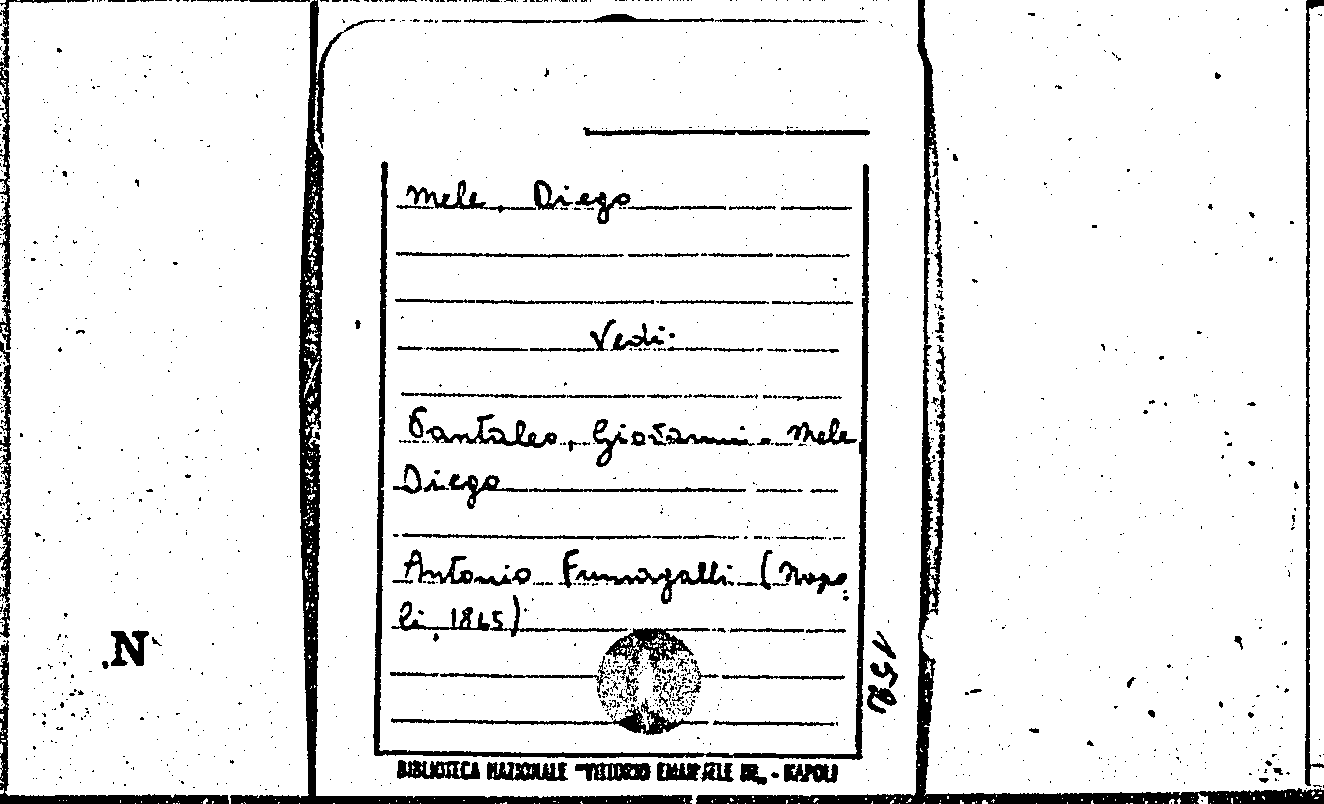 Mele, Diego
Vedi:
Pantaleo, Giovanni - Mele
Diego
Antonio Fumagalli (Napo=
li, 1865)
.N
BIBLIOTECA NAZIONALE "VITTORIO EMANUELE III„ - NAPOLI